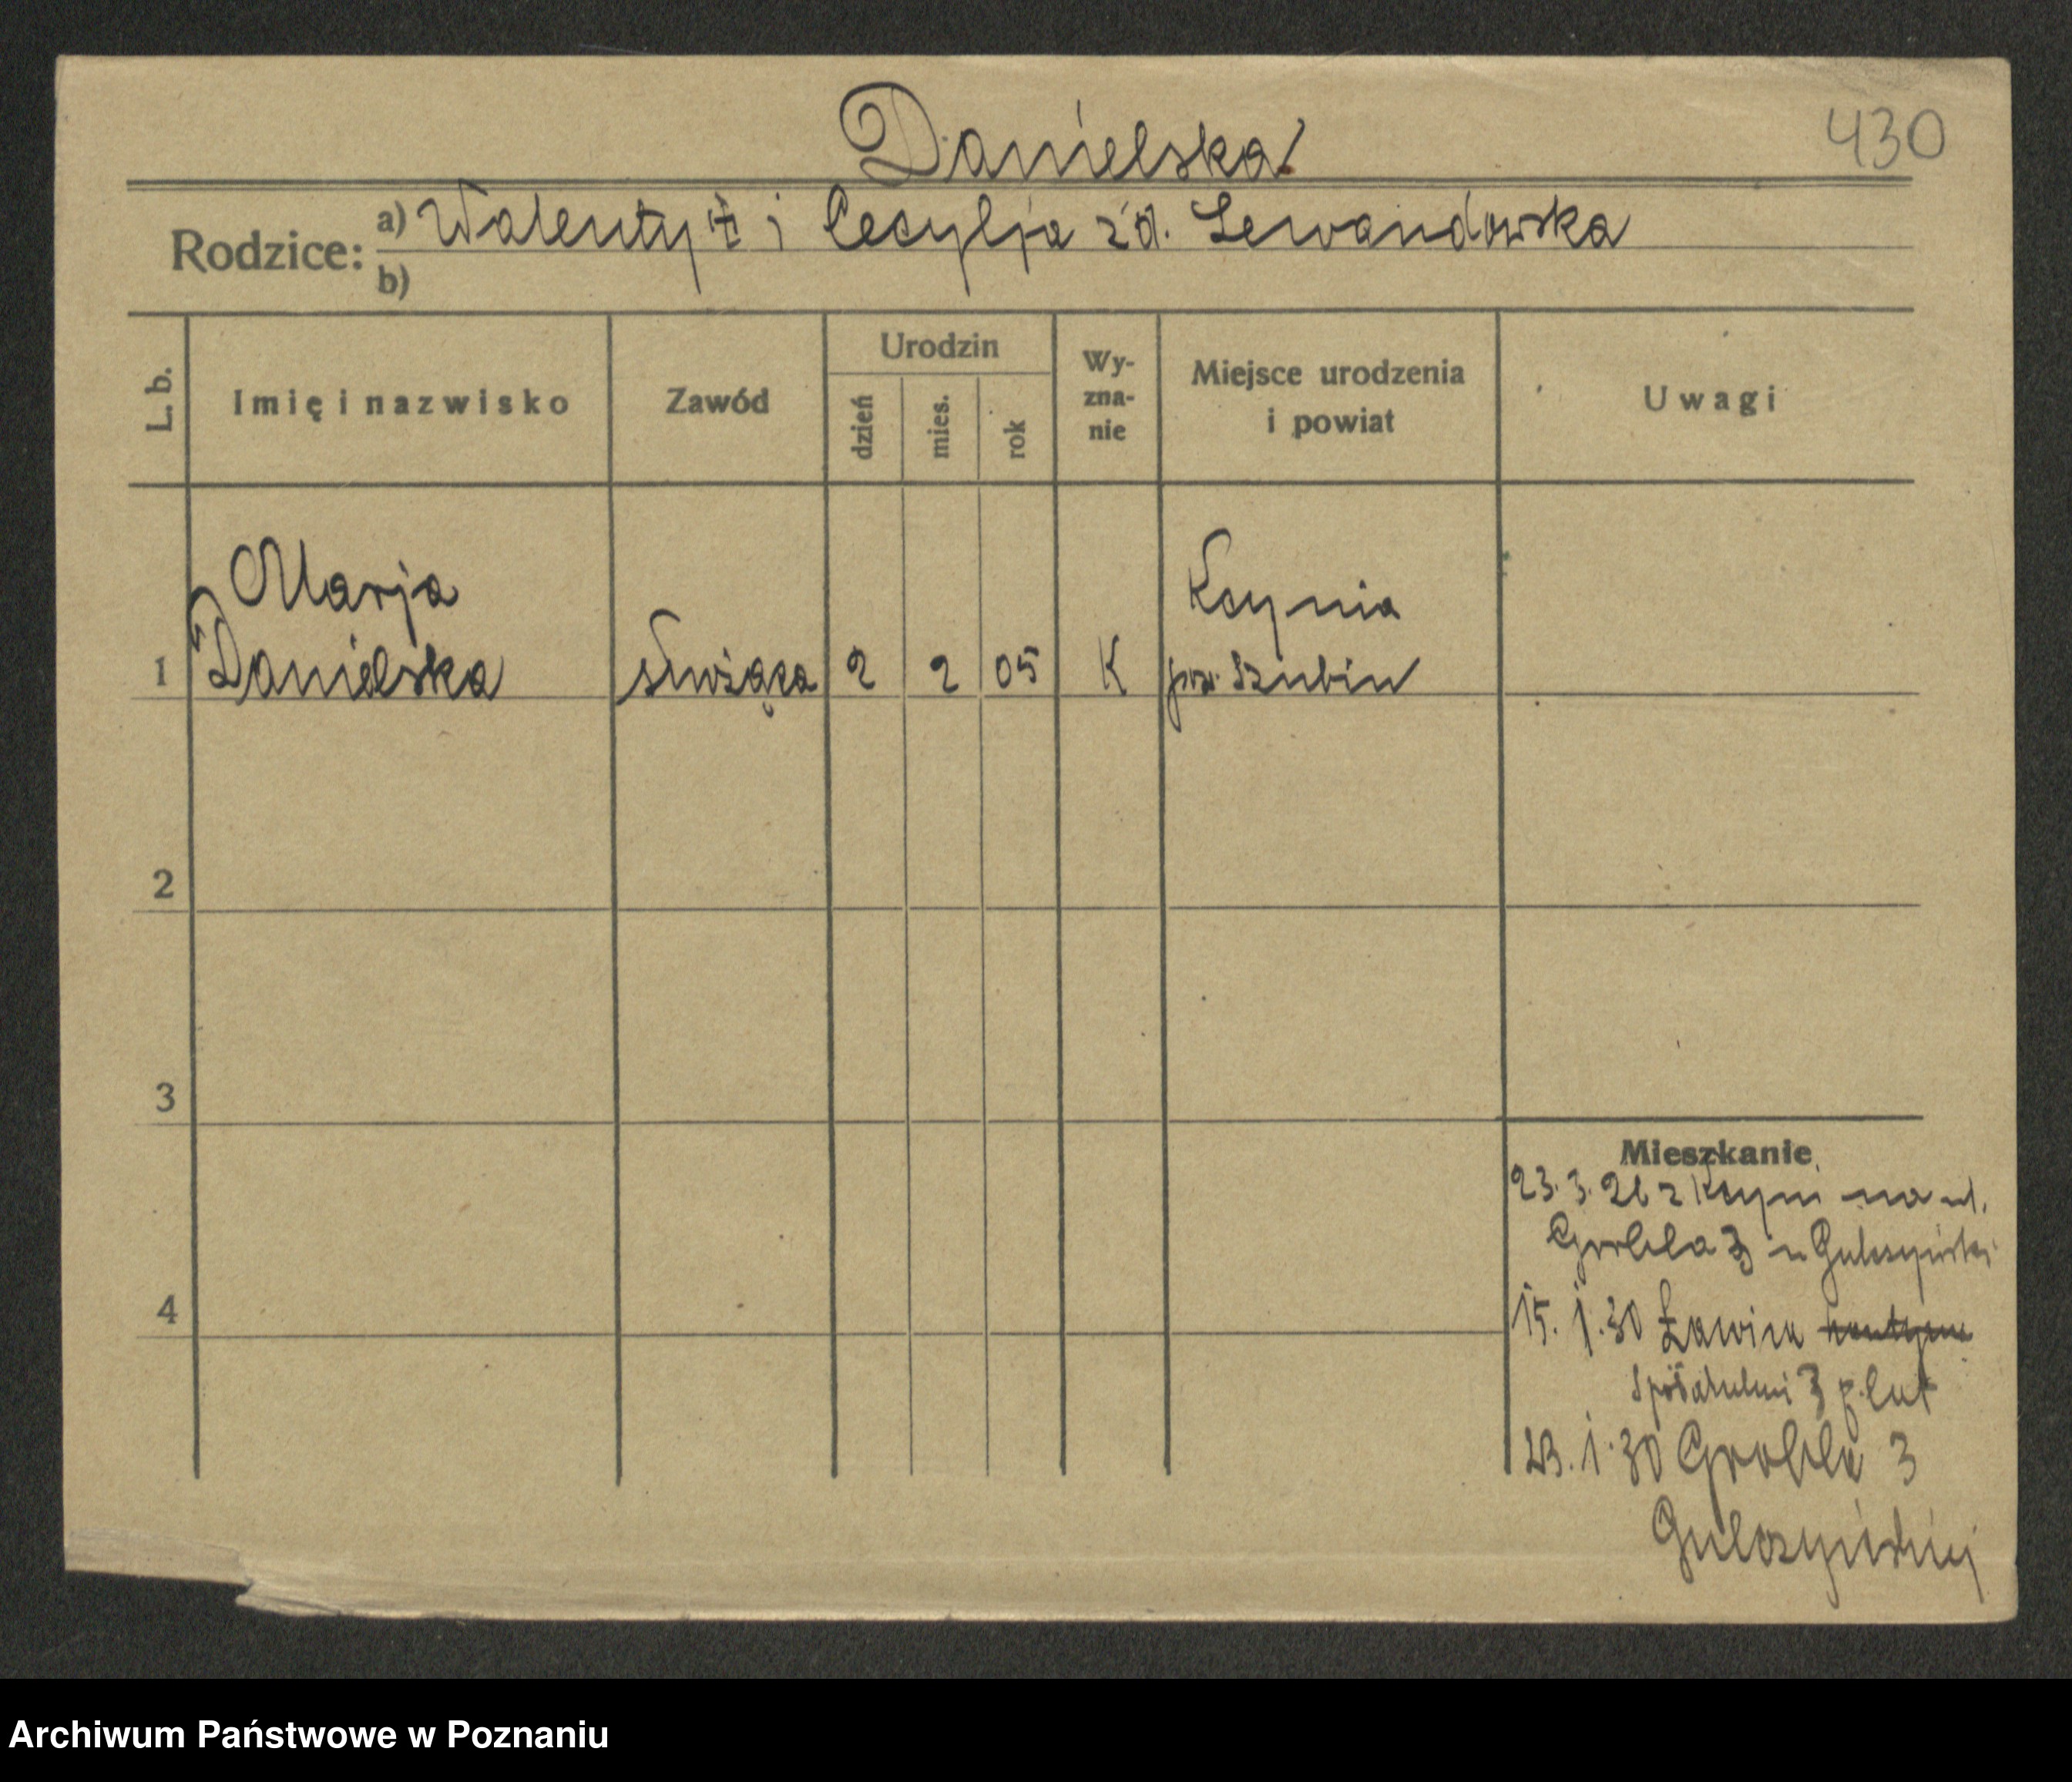 Danielska
430
Rodzice: a) Walenty i Cecylja zd. Lewandowska
b)
L. b.
Imię i nazwisko
Zawód
Urodzin
dzień
mies.
rok
Wy-
zna-
nie
Miejsce urodzenia
i powiat
Uwagi
Marja Kcynia
1 Danielska służąca 2 2 05 K pow. Szubin
2
3
Mieszkanie
23. 3. 26 z Kcyni na ul.
Grobla 3 u Gulczyński
4
15. 1. 30 Ławica
3
23. 1. 30 Grobla 3
Gulczyńskiej
Archiwum Państwowe w Poznaniu